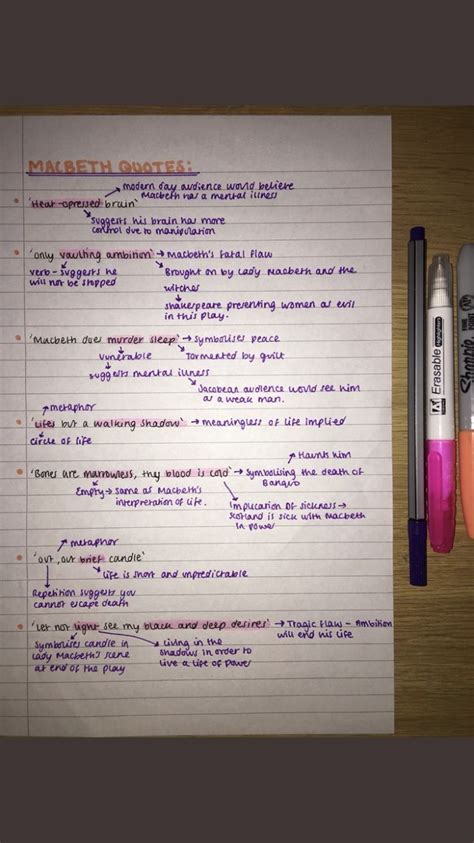 MACBETH QUOTES:
modern day audience would believe
Macbeth has a mental illness
'Heat-opressed brain'
Suggests his brain has more
control due to manipulation
'only vaulting ambition' → Macbeth's fatal flaw
verb - suggests he
will not be stopped
Brought on by Lady Macbeth and the
witches
Shakespeare presenting women as evil
in this play.
'Macbeth does murder sleep' → symbolises peace
vunerable
Tormented by guilt
suggests mental illness
Jacobean audience would see him
as a weak man.
metaphor
'Lifes but a walking shadow' → meaningless of life implied
circle of life
Haunts him
'Bones are marrowless, thy blood is cold' → symbolising the death of
Banquo
Empty → same as Macbeth's
interpretation of life.
implication of sickness →
Scotland is sick with Macbeth
in power
metaphor
'out, out brief candle'
life is short and unpredictable
Repetition suggests you
cannot escape death
'Let not light see my black and deep desires' → Tragic flaw - Ambition
will end his life
symbolises candle in
Lady Macbeth's scene
at end of the play
Living in the
shadows in order to
live a life of power
Erasable
HIGHLIGHTERS
Sharpie